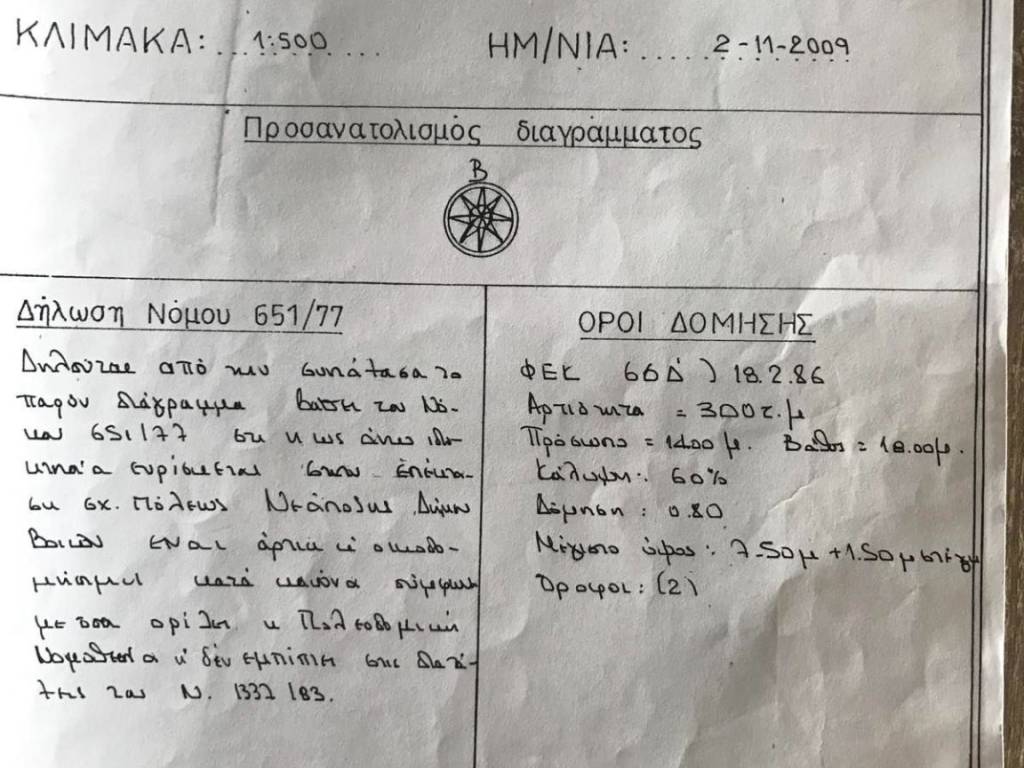 ΚΛΙΜΑΚΑ: ...1:500.... ΗΜ/ΝΙΑ: .....2-11-2009
Προσανατολισμός διαγράμματος
Β
Δήλωση Νόμου 651/77
Δηλούται από την συντάσσα το
παρόν διάγραμμα βάσει του Νό-
μου 651/77 ότι η ως άνω ιδιο-
κτησία ευρίσκεται στην επέκτα-
ση σχ. Πόλεως Νεάπολης Δήμου
Βοιών είναι άρτια κ' οικοδο-
μήσιμη κατά κανόνα σύμφωνα
με όσα ορίζει η Πολεοδομική
Νομοθεσία κ' δέν εμπίπτει στις διατά-
ξεις του Ν. 1337/83.
ΟΡΟΙ ΔΟΜΗΣΗΣ
ΦΕΚ 66Δ) 18.2.86
Αρτιότητα = 300τ.μ
Πρόσωπο = 1400μ. Βάθος = 18.00μ.
Κάλυψη: 60%
Δόμηση: 0.80
Μέγιστο ύψος: 7.50μ +1.50μ στέγη
Όροφοι: (2)